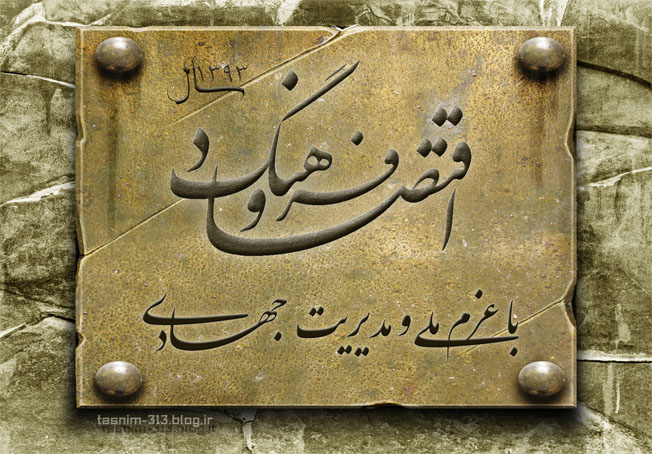 سال ۱۳۹۳
اقتصاد و فرهنگ
با عزم ملی و مدیریت جهادی
tasnim-313.blog.ir